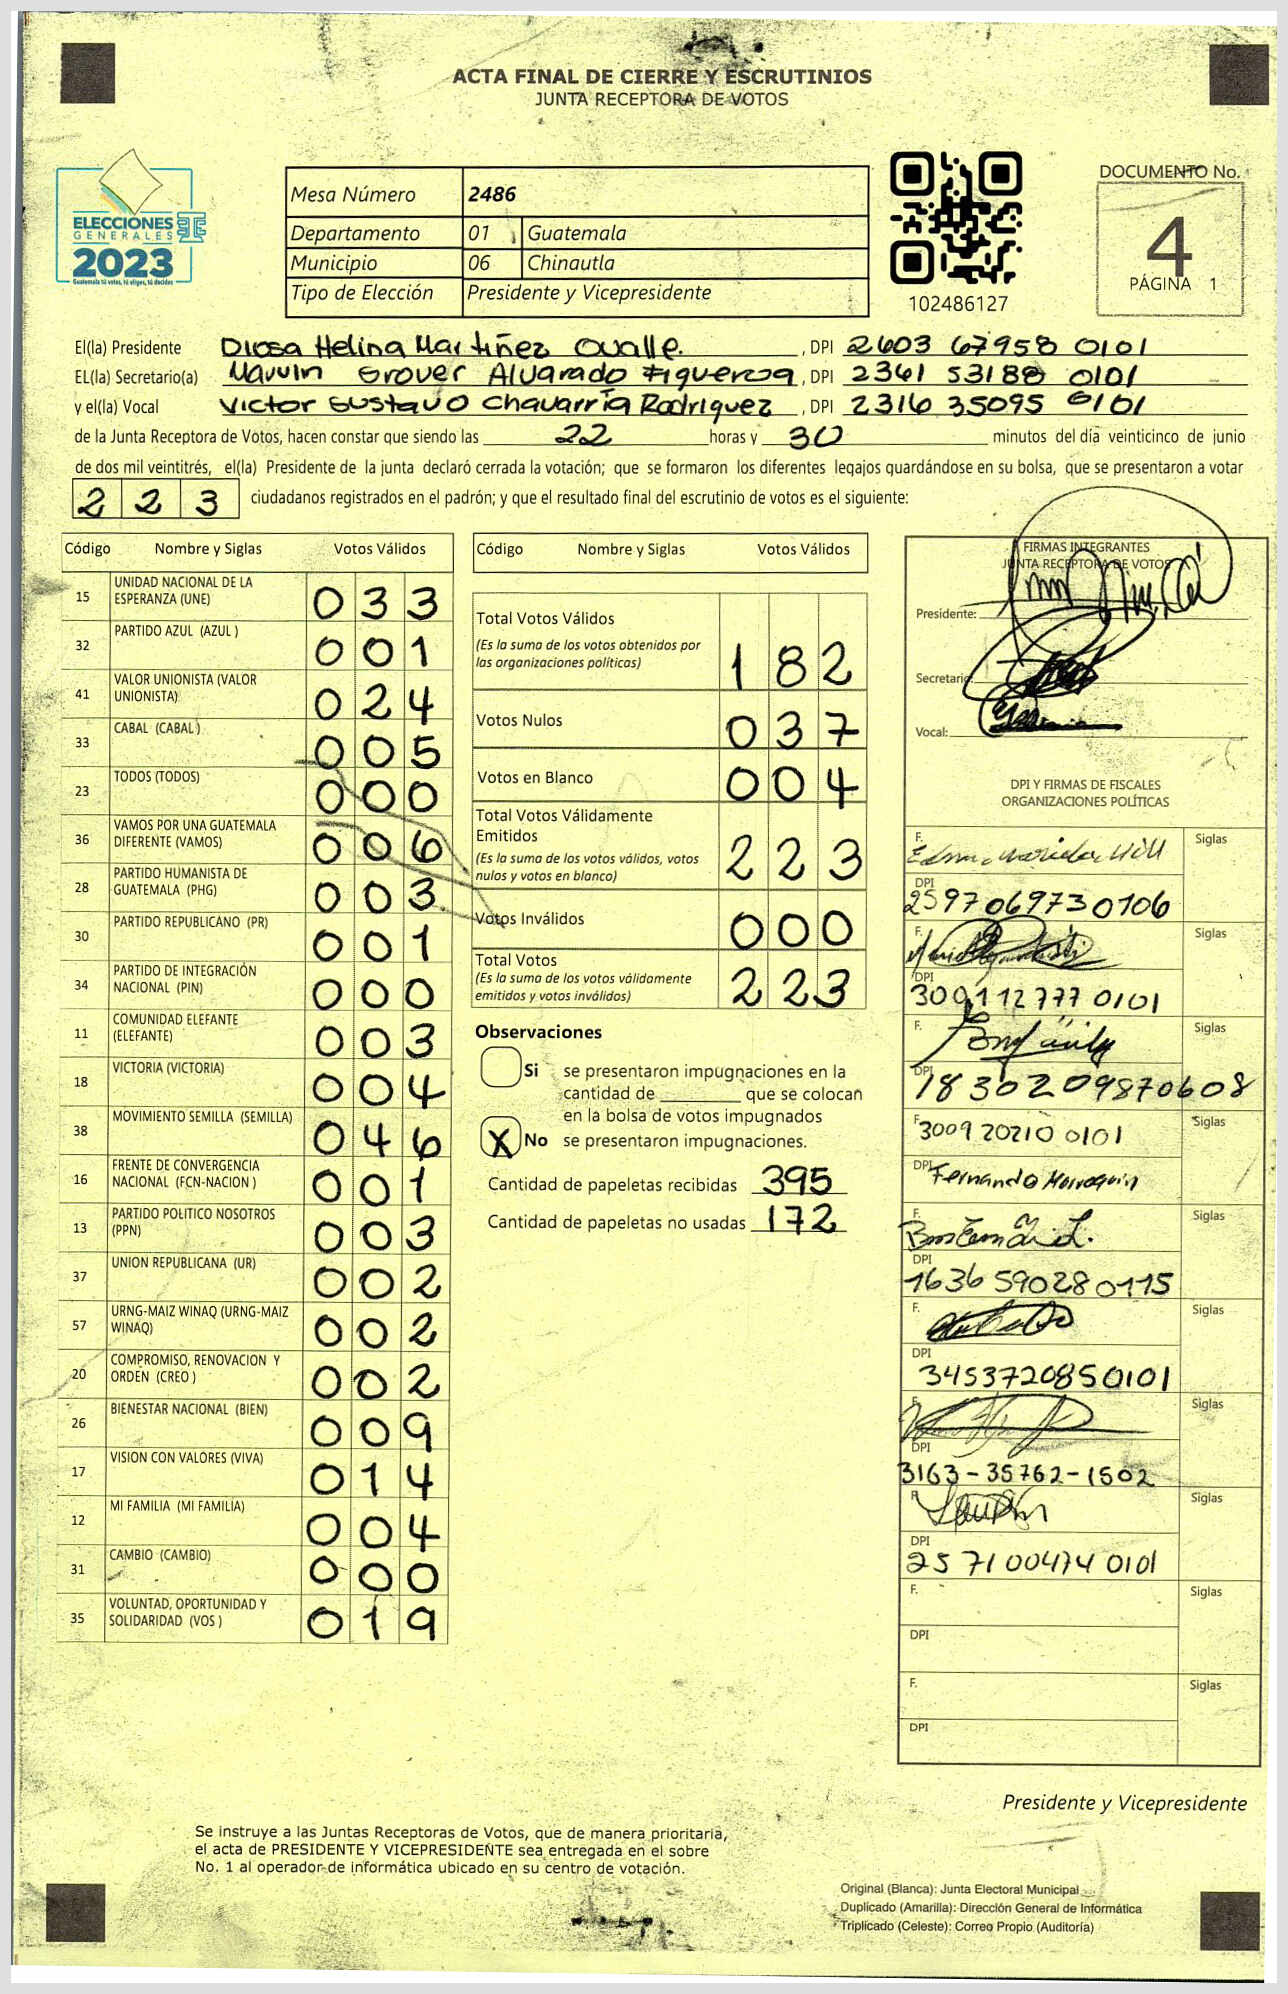 ACTA FINAL DE CIERRE Y ESCRUTINIOS
JUNTA RECEPTORA DE VOTOS
ELECCIONES
GENERALES
2023
Guatemala tú votas, tú eliges, tú decides
Mesa Número 2486
Departamento 01 Guatemala
Municipio 06 Chinautla
Tipo de Elección Presidente y Vicepresidente
102486127
DOCUMENTO No.
4
PÁGINA 1
El(la) Presidente Diosa Helina Martiñez Ovalle. , DPI 2603 67958 0101
EL(la) Secretario(a) Marvin Grover Alvarado Figueroa , DPI 2361 53188 0101
y el(la) Vocal Victor Gustavo Chavarría Rodriguez , DPI 2316 35095 0101
de la Junta Receptora de Votos, hacen constar que siendo las 22 horas y 30 minutos del día veinticinco de junio
de dos mil veintitrés, el(la) Presidente de la junta declaró cerrada la votación; que se formaron los diferentes legajos guardándose en su bolsa, que se presentaron a votar
223 ciudadanos registrados en el padrón; y que el resultado final del escrutinio de votos es el siguiente:
Código Nombre y Siglas Votos Válidos
15 UNIDAD NACIONAL DE LA ESPERANZA (UNE) 033
32 PARTIDO AZUL (AZUL ) 001
41 VALOR UNIONISTA (VALOR UNIONISTA) 024
33 CABAL (CABAL ) 005
23 TODOS (TODOS) 000
36 VAMOS POR UNA GUATEMALA DIFERENTE (VAMOS) 006
28 PARTIDO HUMANISTA DE GUATEMALA (PHG) 003
30 PARTIDO REPUBLICANO (PR) 001
34 PARTIDO DE INTEGRACIÓN NACIONAL (PIN) 000
11 COMUNIDAD ELEFANTE (ELEFANTE) 003
18 VICTORIA (VICTORIA) 004
38 MOVIMIENTO SEMILLA (SEMILLA) 046
16 FRENTE DE CONVERGENCIA NACIONAL (FCN-NACION ) 001
13 PARTIDO POLITICO NOSOTROS (PPN) 003
37 UNION REPUBLICANA (UR) 002
57 URNG-MAIZ WINAQ (URNG-MAIZ WINAQ) 002
20 COMPROMISO, RENOVACION Y ORDEN (CREO ) 002
26 BIENESTAR NACIONAL (BIEN) 009
17 VISION CON VALORES (VIVA) 014
12 MI FAMILIA (MI FAMILIA) 004
31 CAMBIO (CAMBIO) 000
35 VOLUNTAD, OPORTUNIDAD Y SOLIDARIDAD (VOS ) 019
Código Nombre y Siglas Votos Válidos
Total Votos Válidos 182
(Es la suma de los votos obtenidos por
las organizaciones políticas)
Votos Nulos 037
Votos en Blanco 004
Total Votos Válidamente
Emitidos 223
(Es la suma de los votos válidos, votos
nulos y votos en blanco)
Votos Inválidos 000
Total Votos 223
(Es la suma de los votos válidamente
emitidos y votos inválidos)
Observaciones
Si se presentaron impugnaciones en la
cantidad de ________ que se colocan
en la bolsa de votos impugnados
X No se presentaron impugnaciones.
Cantidad de papeletas recibidas 395
Cantidad de papeletas no usadas 172
FIRMAS INTEGRANTES
JUNTA RECEPTORA DE VOTOS
Presidente:
Secretario:
Vocal:
DPI Y FIRMAS DE FISCALES
ORGANIZACIONES POLÍTICAS
F. Siglas
DPI
2597069730106
F. Siglas
DPI
3009112777 0101
F. Siglas
DPI
1830209870608
F. Siglas
3009 20210 0101
DPI Fernando Marroquin
F. Siglas
DPI
1636 59028 0115
F. Siglas
DPI
3453720850101
F. Siglas
DPI
3163-35762-1502
F. Siglas
DPI
2571004740101
F. Siglas
DPI
F. Siglas
DPI
Presidente y Vicepresidente
Se instruye a las Juntas Receptoras de Votos, que de manera prioritaria,
el acta de PRESIDENTE Y VICEPRESIDENTE sea entregada en el sobre
No. 1 al operador de informática ubicado en su centro de votación.
Original (Blanca): Junta Electoral Municipal
Duplicado (Amarilla): Dirección General de Informática
Triplicado (Celeste): Correo Propio (Auditoría)